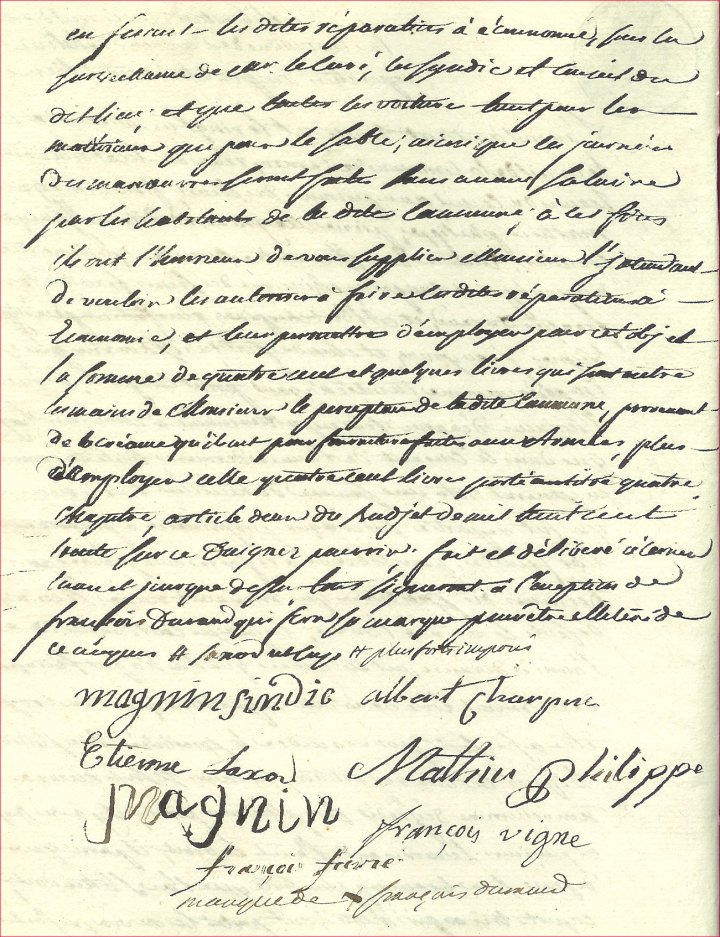 en feront les dites réparations à économie, sous la
surveillance de mr. le curé, le syndic et
dit lieu et que toutes les voitures tant pour les
matériaux que pour le sable, ainsi que les journées
des manoeuvres seront faites sans aucun salaire
par les habitants de la dite Commune, à ces fins
ils ont l'honneur de vous supplier Monsieur l'Intendant
de vouloir les autoriser à faire les dites réparations à
Economie, et leur permettre d'employer pour cet objet
la somme de quatre cent et quelques livres qui sont entre
les mains de Monsieur le percepteur de la dite Commune, provenant
de la créance qu'ils ont pour fourniture faites aux Armées, plus
d'employer celle quatre cent livres porté au titre quatre
chapitre, article deux du Budjet de mil huit cent
trente sur ce Daignez pourvoir. fait et délibéré à
l'an et jour que dessus tous signeront à l'exception de
françois Durand qui fera sa marque pour être illétéré de
ce # plus forts imposés
magnin sindic albert Charpin
Etienne Saxod Mathieu Philippe
magnin
françois vigne
françoi favre
marque de + françois durand